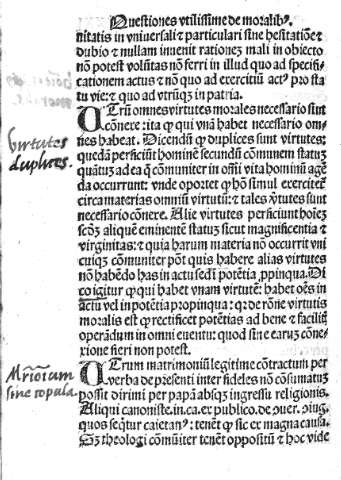 Questiones vtilissime de moralibꝰ.
nitatis in vniuersali ⁊ particulari sine hesitatiõe ⁊
dubio ⁊ nullam inuenit rationeʒ mali in obiecto
nõ potest volũtas nõ ferri in illud quo ad specifi-
cationem actus ⁊ nõ quo ad exercitiũ actꝰ pro sta
tu vie: ⁊ quo ad vtrũqʒ in patria.
VTrũ omnes virtutes morales necessario sint
cõnexe: ita ꝙ qui vnã habet necessario om-
nes habeat. Dicendũ ꝙ duplices sunt virtutes:
quedã perficiũt hominẽ secundũ cõmunem statuʒ
quãtuʒ ad ea q̃ cõmuniter in oĩm vita hominũ agẽ
da occurrunt: vnde oportet ꝙ hõ simul exerciteť
circa materias omniũ virtutũ: ⁊ tales v̓tutes sunt
necessario cõnexe. Alie virtutes perficiunt hoieʒ
scðʒ aliquẽ eminentẽ statuʒ sicut magnificentia ⁊
virginitas: ⁊ quia harum materia nõ occurrit vni
cuiqʒ cõmuniter põt quis habere alias virtutes
nõ habẽdo has in actu sed ĩ potẽtia ꝓpinqua. Di
co igitur ꝙ qui habet vnam virtutẽ: habet oẽs in
actu vel in potẽtia propinqua: qꝛ de rõne virtutis
moralis est ꝙ rectificet potẽtias ad bene ⁊ faciliť
operãdum in omni euentu: quod sine earuʒ cõne-
xione fieri non potest.
VTrum matrimoniũ legitime cõtractum per
verba de presenti inter fideles nõ cõsumatuʒ
possit dirimi per papã absqʒ ingressu religionis.
Aliqui canoniste. in. ca. ex publico. de
queʒ seq̃tur caietanꝰ: tenẽt ꝙ sic ex magna causa.
Sʒ theologi cõmũiter tenẽt oppositũ ⁊ hoc vide
Virtutes
duplices.
Mr̃iotum
sine copula.